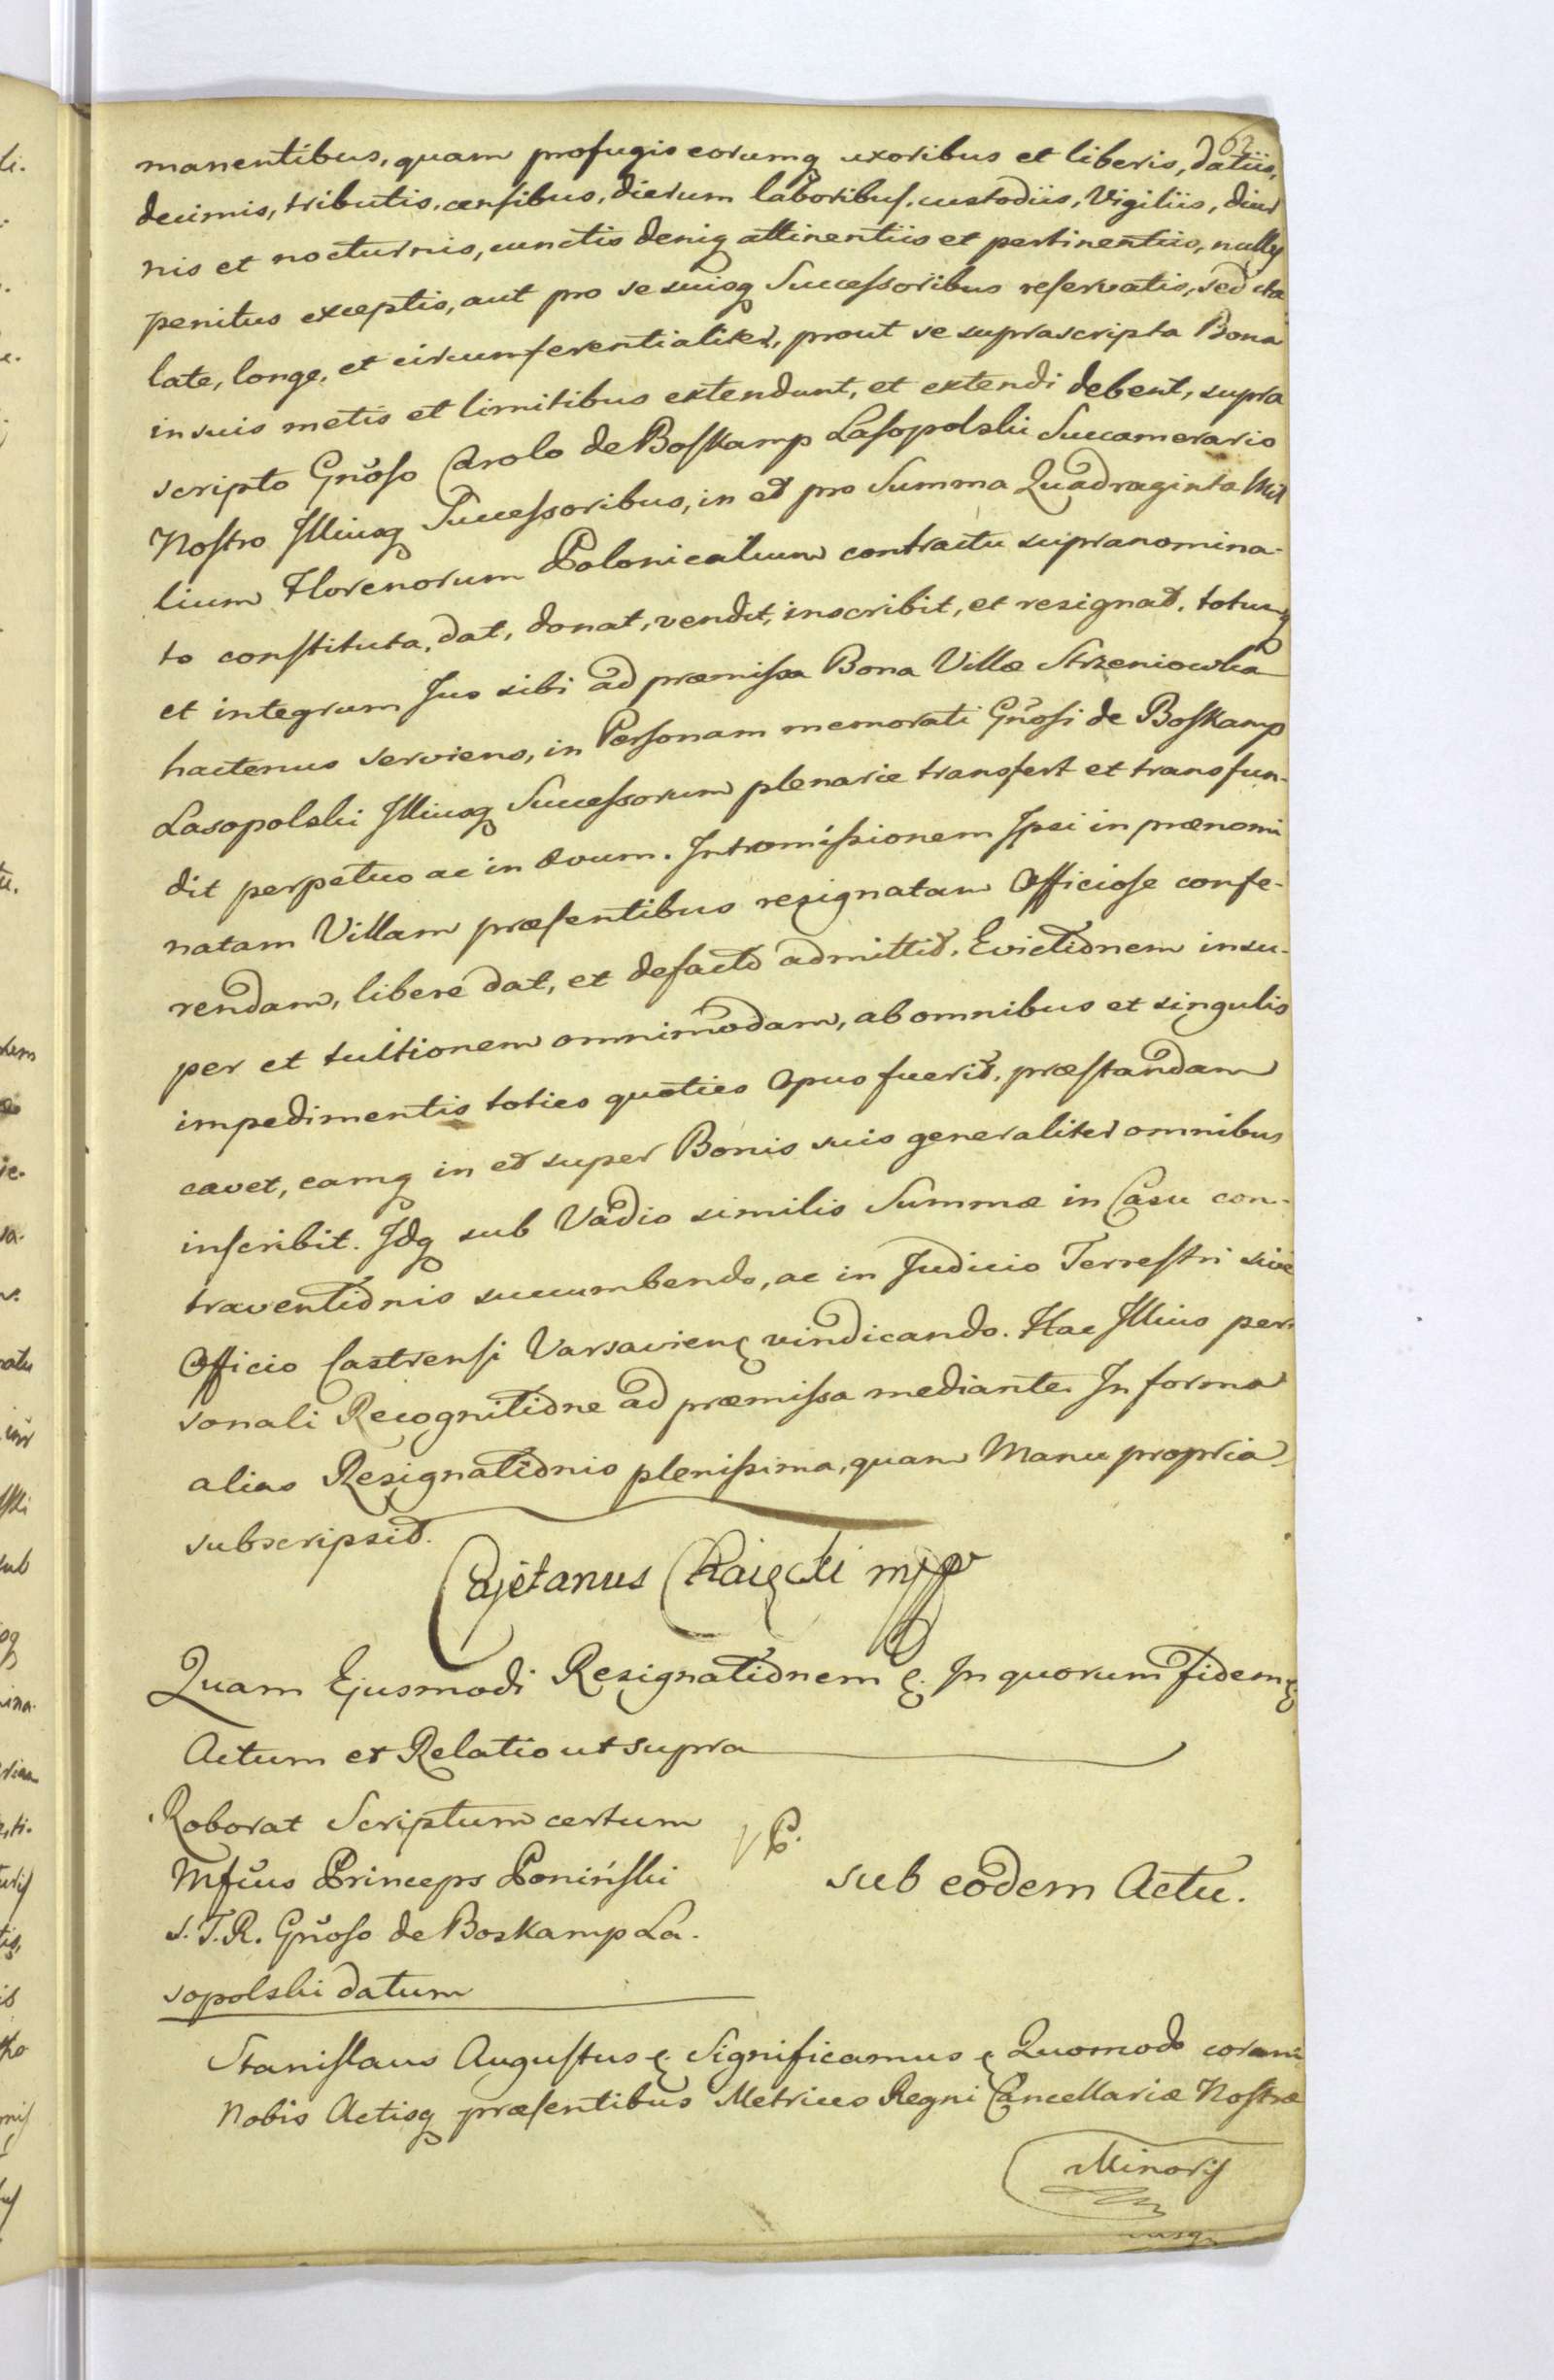 62
manentibus, quam profugis eorumq uxoribus et liberis, datiis,
decimis, tributis, censibus, dierum laboribus, custodiis, Vigiliis, diur
nis et nocturnis, cunctis deniq attinentiis et pertinentiis, nullis
penitus exceptis, aut pro se suisq Successoribus reservatis, sed ita
late, longe, et circumferentialiter, prout se suprascripta Bona
in suis metis et limitibus extendunt, et extendi debent, supra
scripto Gnoso Carolo de Boskamp Lasopolski Succamerario
Nostro Illiusq Successoribus, in et pro Summa Quadraginta Mil
lium Florenorum Polonicalium contractu supranomina-
to constituta, dat, donat, vendit, inscribit, et resignat, totumq
et integrum Jus sibi ad præmissa Bona Villæ Strzeniowka
hactenus serviens, in Personam memorati Gnosi de Boskamp
Lasopolski Illiusq Successorum plenarie transfert et transfun-
dit perpetuo ac in ævum. Intromissionem Ipsi in prænomi
natam Villam præsentibus resignatam Officiose confe-
rendam, libere dat, et defacto admittit. Evictionem insu-
per et tuitionem omnimodam, ab omnibus et singulis
impedimentis toties quoties opus fuerit, præstandam
cavet, eamq in et super Bonis suis generaliter omnibus
inscribit. Idq sub Vadio similis Summæ in Casu con-
traventionis succumbendo, ac in Judicio Terrestri sive
Officio Castrensi Varsavien vindicando. Hac Illius per-
sonali Recognitione ad præmissa mediante. In forma
alias Resignationis plenissima, quam Manu propria
subscripsit.
Cajetanus mpp
Quam Ejusmodi Resignationem &. In quorum Fidem &.
Actum et Relatio ut supra
Roborat Scriptum certum
Mfcus Princeps Poniński
S.T.R. Gnoso de Boskamp La-
sopolski datum
sub eodem Actu.
Stanislaus Augustus &. Significamus & Quomodo coram
Nobis Actisq præsentibus Metrices Regni Cancellariæ Nostræ
Minoris